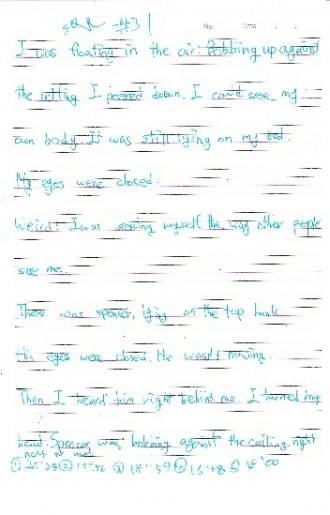 No.
I was floating in the air. Bobbing up against
the ceiling. I peered down. I could see my
own body. It was still lying on my bed.
My eyes were closed.
Weird! I was seeing myself the way other people
see me.
There was Spencer, lying on the top bunk
His eyes were closed. He wasn't moving.
Then I heard him right behind me. I turned my
head. Spencer was bobbing against the ceiling right
next to me!